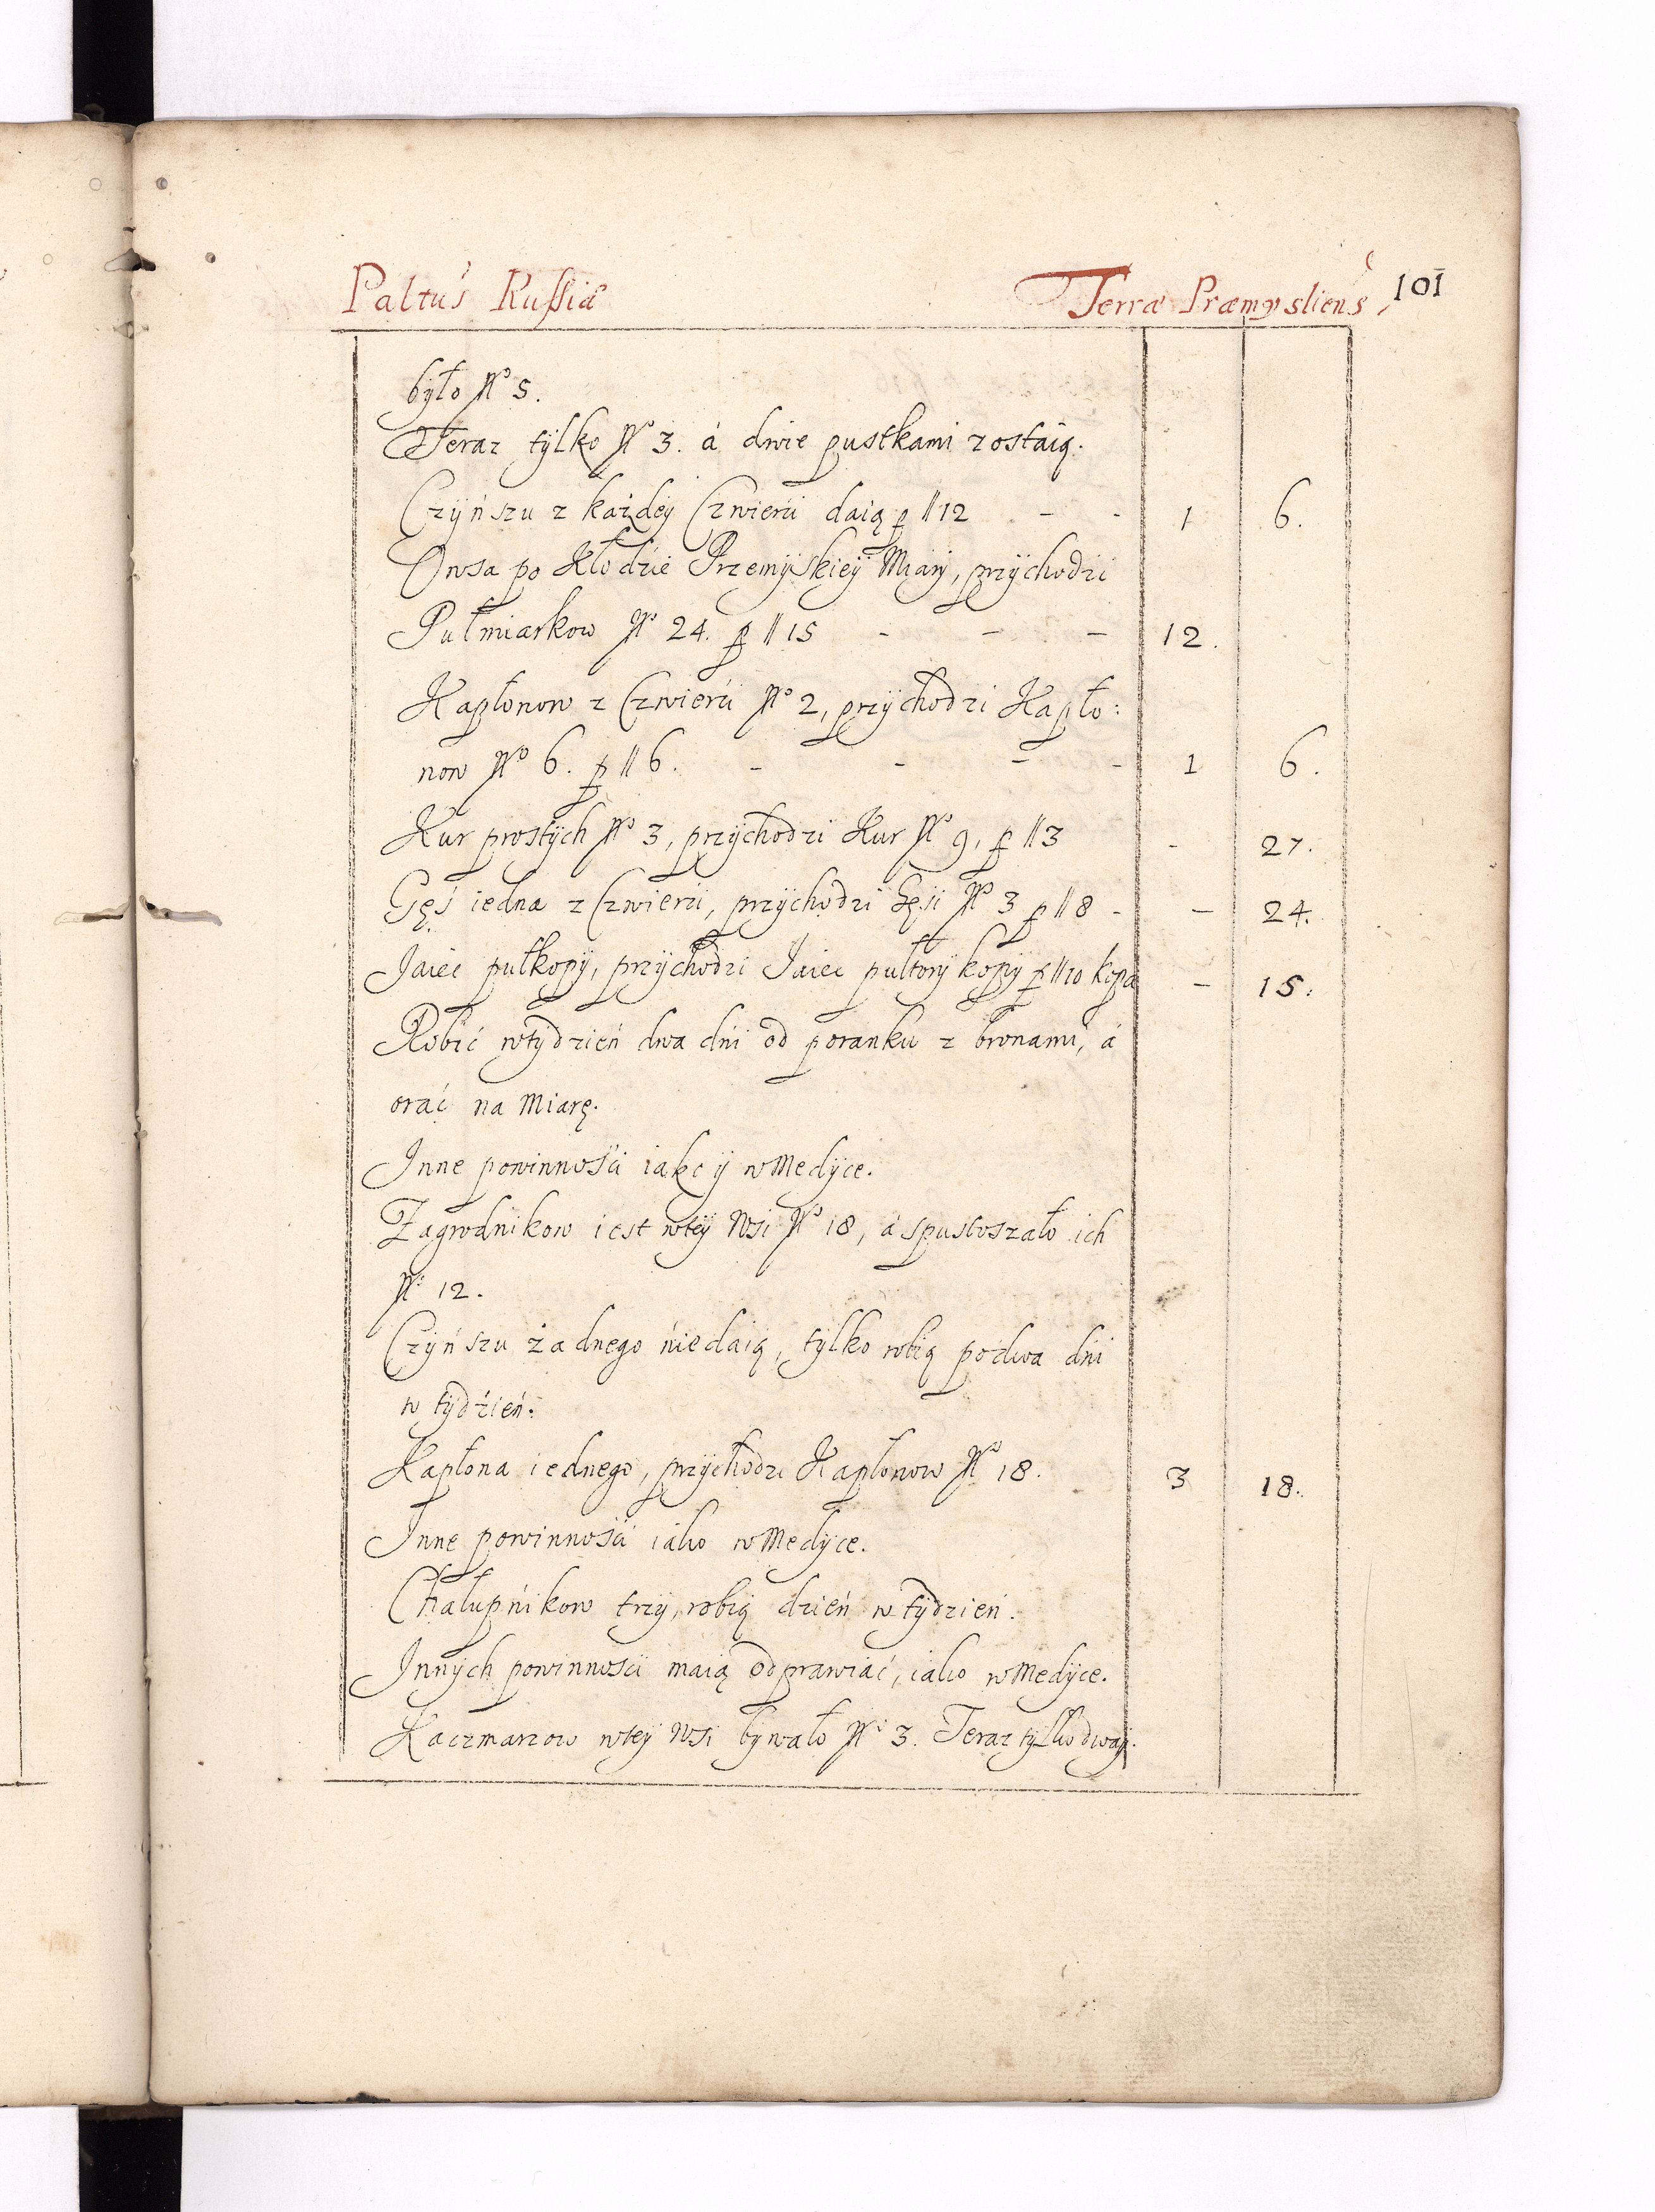 Paltus Russiæ Terræ Præmysliens, 101
było No 5.
Teraz tylko No 3. á dwie pustkami zostaią.
Czyńszu z każdey Czwierći daią p // 12 - - 1 6.
Owsa po Kłodźie Przemyskiey Miary, przychodźi
Pułmiarkow No 24. p // 15 - - - 12.
Kapłonow z Czwierći No 2, przychodzi Kapło:
now No 6. p // 6. - - - - 1 6.
Kur prostych No 3, przychodzi Kur No 9, p // 3 - 27.
Gęś iedna z Czwierći, przychodzi Gęsi No 3 p // 8 - - 24.
Iaiec pułkopy, przychodzi Iaiec pułtory kopy p // 10 kopa - 15.
Robić wtydzień dwa dni od poranku z bronami, á
orać na Miarę.
Inne powinnośći iako y wMedyce.
Zagrodnikow iest wtey Wsi No 18, á spustoszało ich
No 12.
Czyńszu żadnego niedaią, tylko robią podwa dni
w tydźień.
Kapłona iednego, przychodzi Kapłonow No 18. 3 18.
Inne powinnośći iako wMedyce.
Chałupnikow trzy, robią dzień w tydzien.
Innych powinnośći maią odprawiać, iako wMedyce.
Kaczmarzow wtey Wsi bywało No 3. Teraz tylko dway.